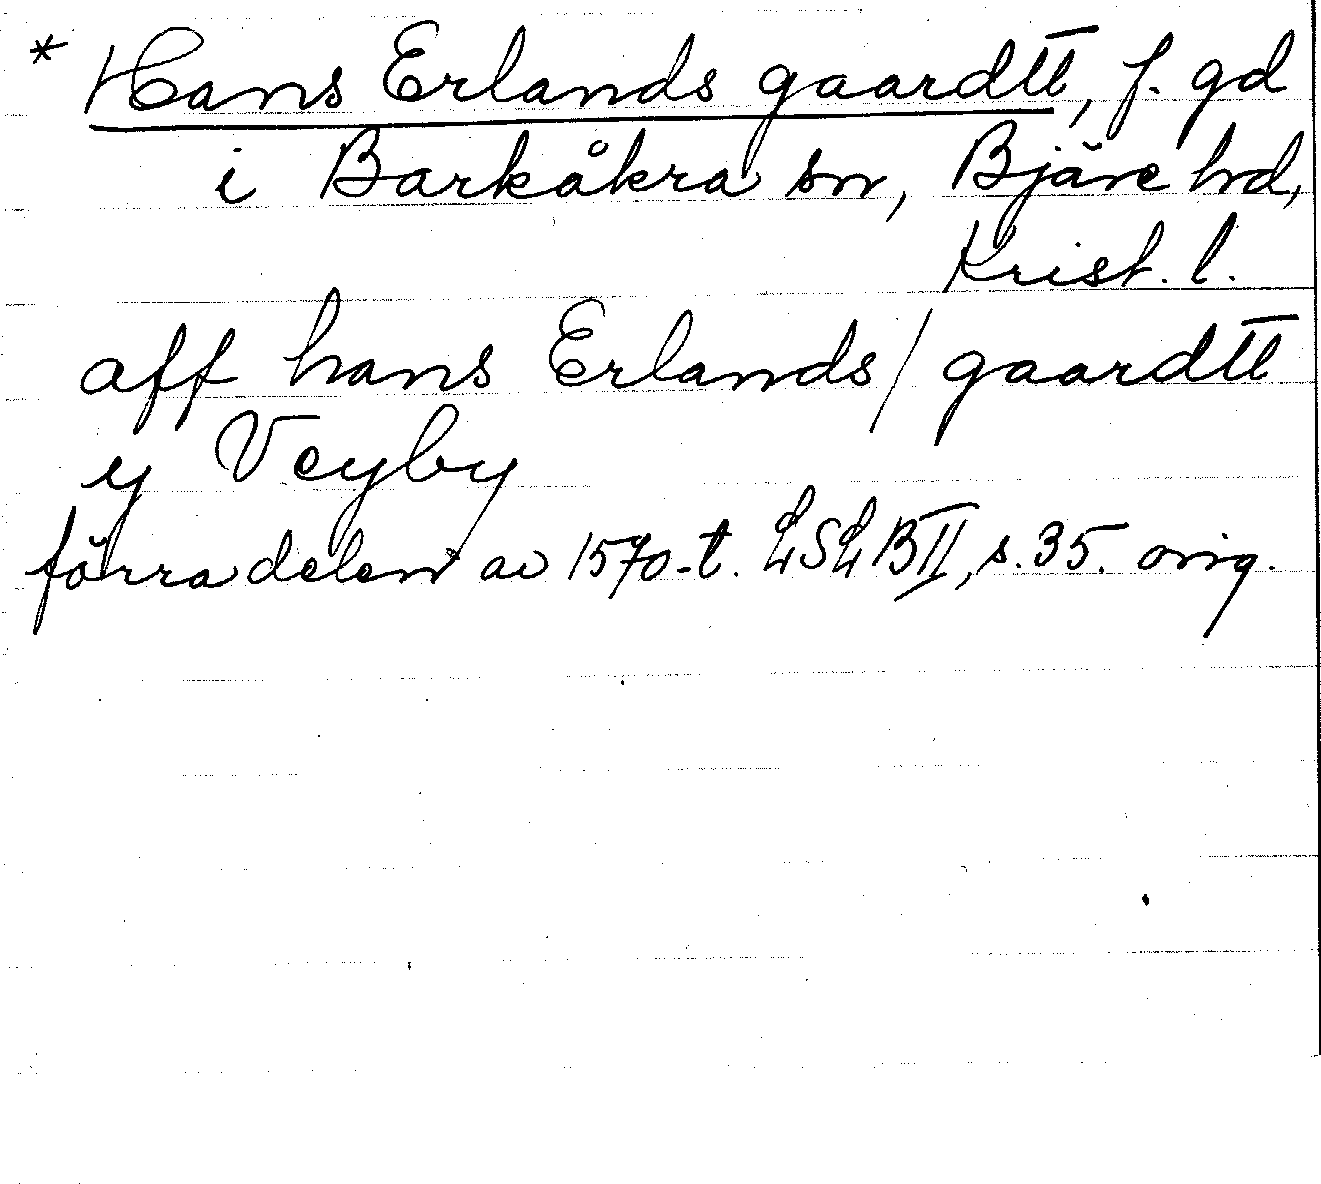 * Hans Erlands gaardtt, f. gd
i Barkåkra sn, Bjäre hd,
Krist. l.
aff hans Erlands / gaardtt
y Veyby
förra delen av 1570-t. LSLBII, s. 35. orig.